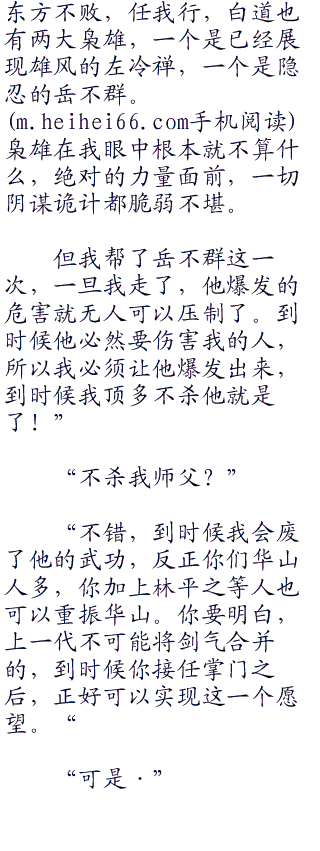 东方不败，任我行，白道也
有两大枭雄，一个是已经展
现雄风的左冷禅，一个是隐
忍的岳不群。
(m.heihei66.com手机阅读)
枭雄在我眼中根本就不算什
么，绝对的力量面前，一切
阴谋诡计都脆弱不堪。
但我帮了岳不群这一
次，一旦我走了，他爆发的
危害就无人可以压制了。到
时候他必然要伤害我的人，
所以我必须让他爆发出来，
到时候我顶多不杀他就是
了！”
“不杀我师父？”
“不错，到时候我会废
了他的武功，反正你们华山
人多，你加上林平之等人也
可以重振华山。你要明白，
上一代不可能将剑气合并
的，到时候你接任掌门之
后，正好可以实现这一个愿
望。“
“可是·”